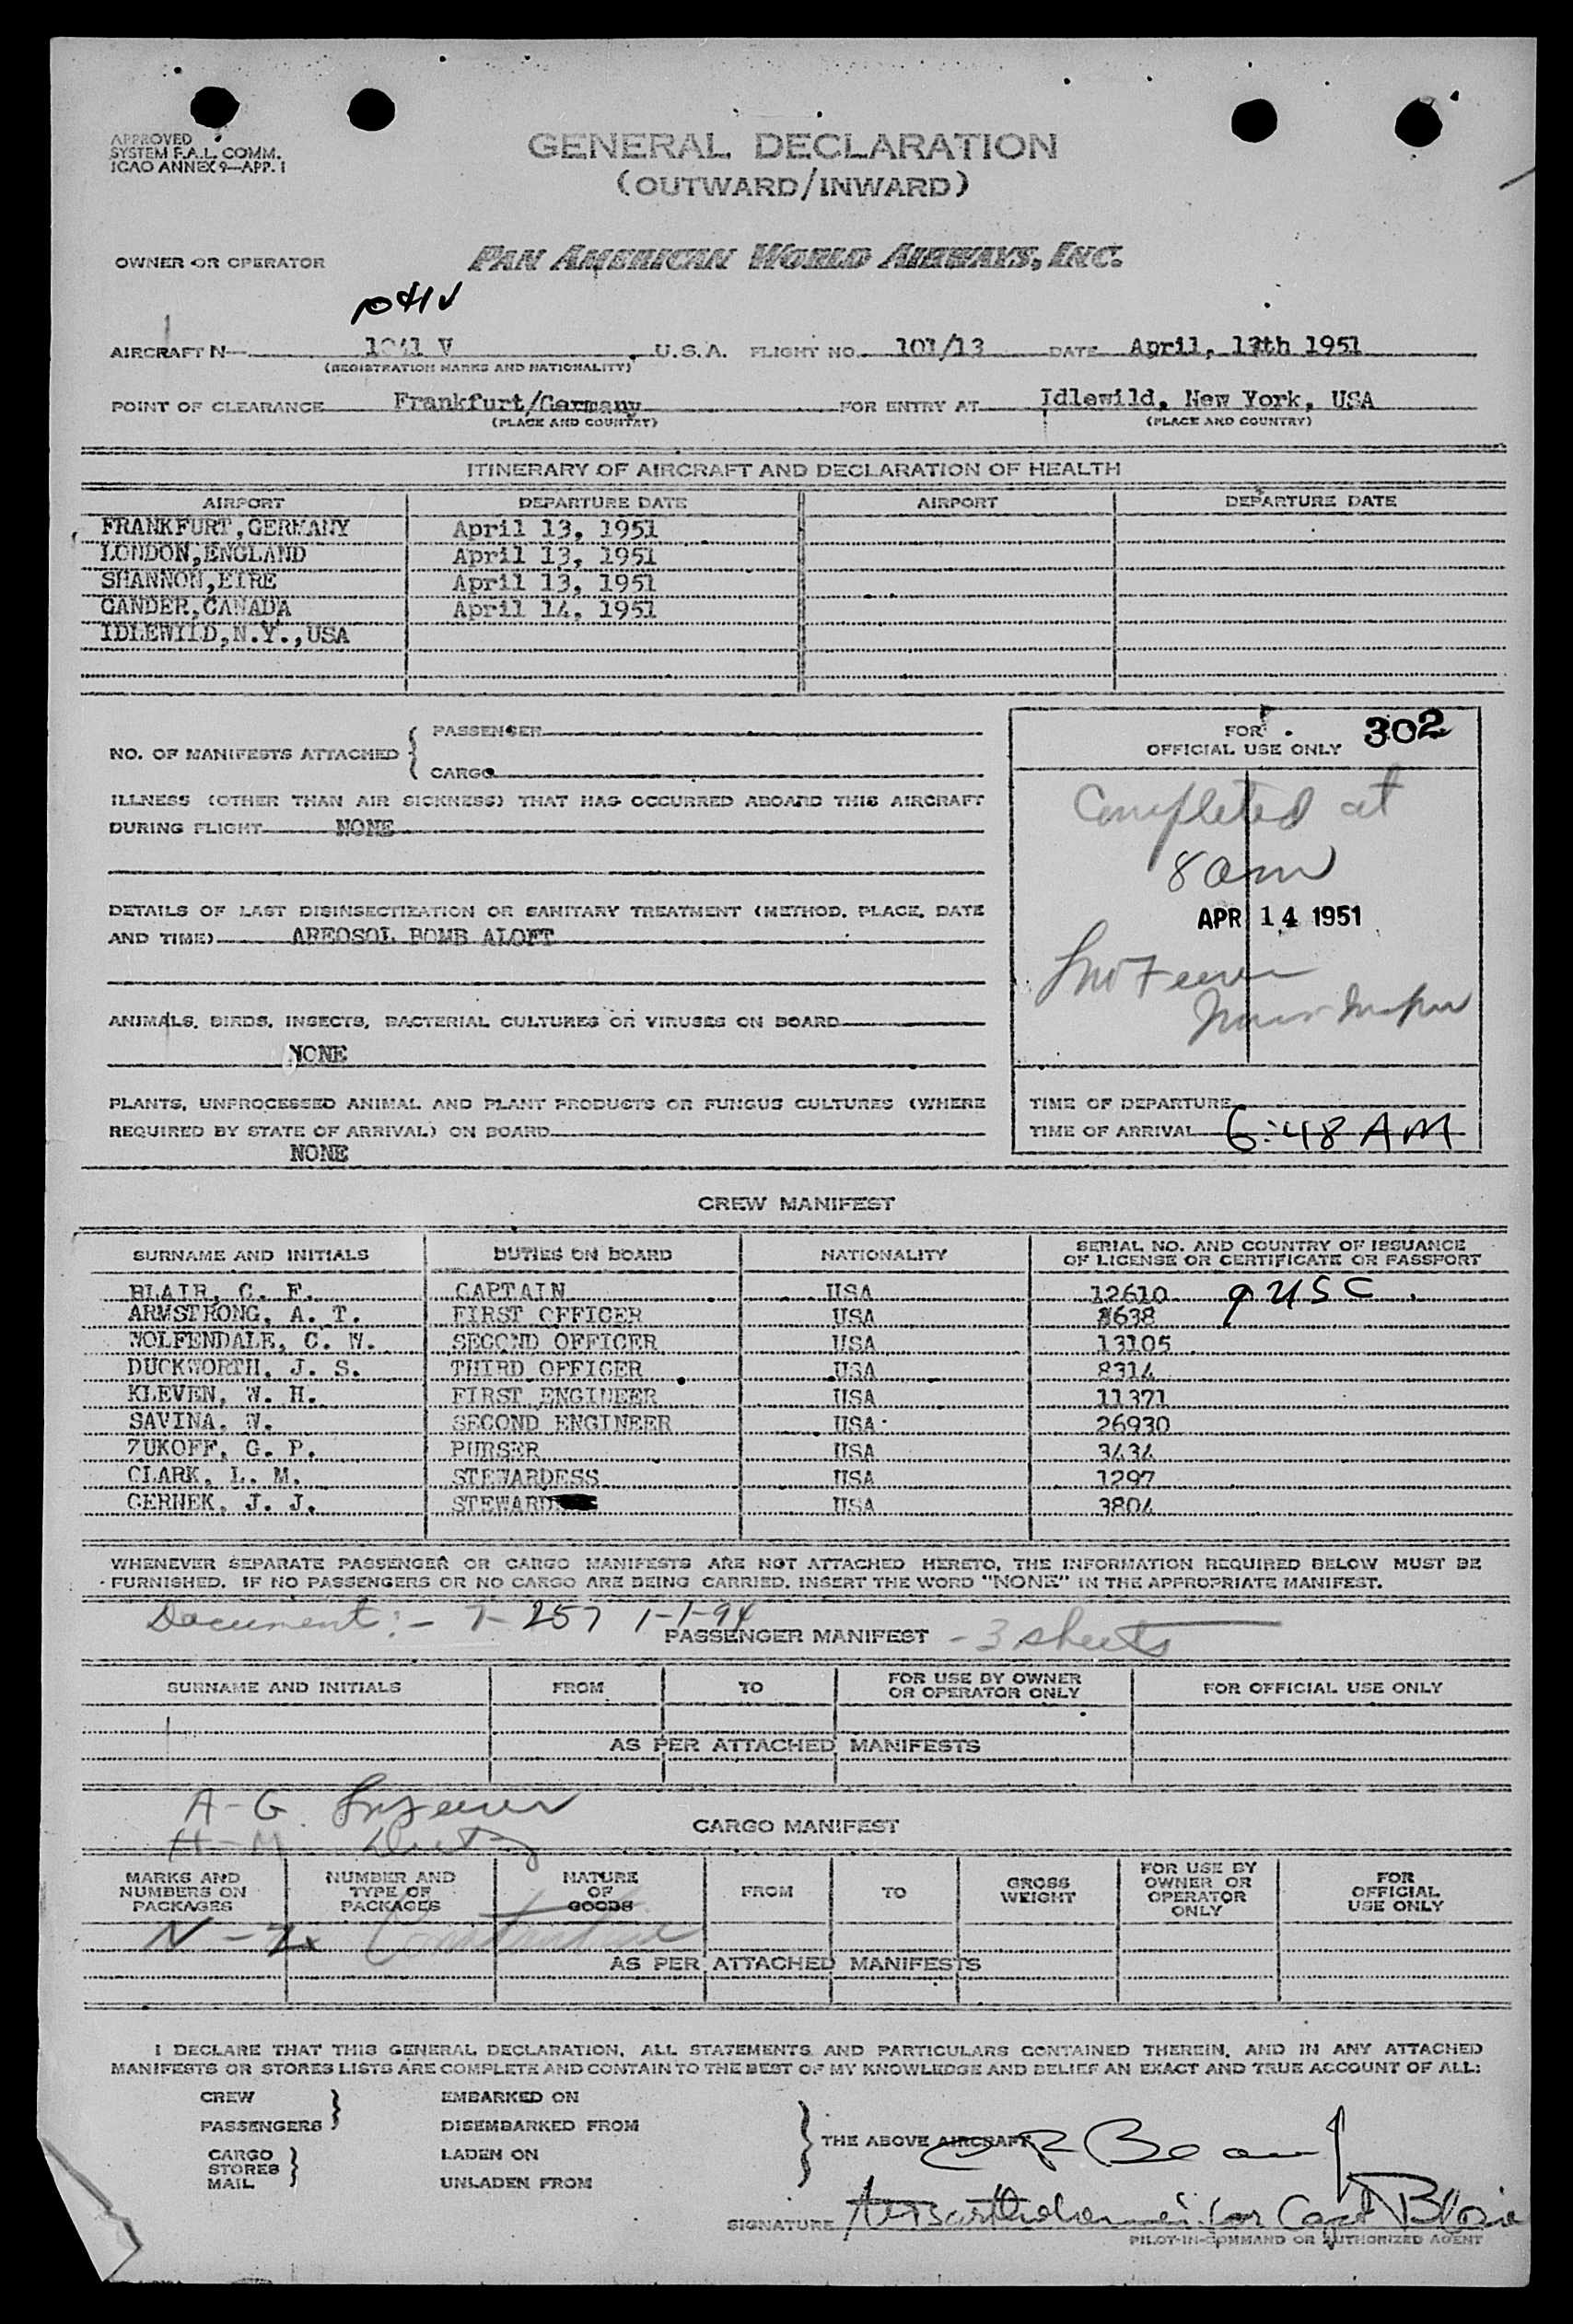 APPROVED
SYSTEM F.A.L. COMM.
ICAO ANNEX 9—APP. 1
GENERAL DECLARATION
(OUTWARD/INWARD)
OWNER OR OPERATOR PAN AMERICAN WORLD AIRWAYS, INC.
1041V
AIRCRAFT N— V U.S.A. FLIGHT NO. 101/13 DATE April, 13th 1951
(REGISTRATION MARKS AND NATIONALITY)
POINT OF CLEARANCE Frankfurt/Germany FOR ENTRY AT Idlewild, New York, USA
(PLACE AND COUNTRY) (PLACE AND COUNTRY)
ITINERARY OF AIRCRAFT AND DECLARATION OF HEALTH
AIRPORT DEPARTURE DATE AIRPORT DEPARTURE DATE
FRANKFURT,GERMANY April 13, 1951
LONDON,ENGLAND April 13, 1951
SHANNON,EIRE April 13, 1951
GANDER,CANADA April 14, 1951
IDLEWILD,N.Y.,USA
NO. OF MANIFESTS ATTACHED { PASSENGER
CARGO
ILLNESS (OTHER THAN AIR SICKNESS) THAT HAS OCCURRED ABOARD THIS AIRCRAFT
DURING FLIGHT NONE
DETAILS OF LAST DISINSECTIZATION OR SANITARY TREATMENT (METHOD, PLACE, DATE
AND TIME) AREOSOL BOMB ALOFT
ANIMALS, BIRDS, INSECTS, BACTERIAL CULTURES OR VIRUSES ON BOARD
NONE
PLANTS, UNPROCESSED ANIMAL AND PLANT PRODUCTS OR FUNGUS CULTURES (WHERE
REQUIRED BY STATE OF ARRIVAL) ON BOARD
NONE
FOR
OFFICIAL USE ONLY 302
Completed at
8 am
APR 14 1951
TIME OF DEPARTURE
TIME OF ARRIVAL 6:48 AM
CREW MANIFEST
SURNAME AND INITIALS DUTIES ON BOARD NATIONALITY SERIAL NO. AND COUNTRY OF ISSUANCE
OF LICENSE OR CERTIFICATE OR PASSPORT
BLAIR, C. F. CAPTAIN USA 12610 9 USC
ARMSTRONG, A. T. FIRST OFFICER USA 638
WOLFENDALE, C. W. SECOND OFFICER USA 13105
DUCKWORTH, J. S. THIRD OFFICER USA 8314
KLEVEN, W. H. FIRST ENGINEER USA 11371
SAVINA, W. SECOND ENGINEER USA 26930
ZUKOFF, G. P. PURSER USA 3434
CLARK, L. M. STEWARDESS USA 1297
CERNEK, J. J. STEWARD USA 3804
WHENEVER SEPARATE PASSENGER OR CARGO MANIFESTS ARE NOT ATTACHED HERETO, THE INFORMATION REQUIRED BELOW MUST BE
FURNISHED. IF NO PASSENGERS OR NO CARGO ARE BEING CARRIED, INSERT THE WORD "NONE" IN THE APPROPRIATE MANIFEST.
Document:- T-257 1-1-94
PASSENGER MANIFEST - 3 sheets
SURNAME AND INITIALS FROM TO FOR USE BY OWNER
OR OPERATOR ONLY FOR OFFICIAL USE ONLY
AS PER ATTACHED MANIFESTS
A-G
H-M
CARGO MANIFEST
MARKS AND
NUMBERS ON
PACKAGES NUMBER AND
TYPE OF
PACKAGES NATURE
OF
GOODS FROM TO GROSS
WEIGHT FOR USE BY
OWNER OR
OPERATOR
ONLY FOR
OFFICIAL
USE ONLY
N - Z
AS PER ATTACHED MANIFESTS
I DECLARE THAT THIS GENERAL DECLARATION, ALL STATEMENTS AND PARTICULARS CONTAINED THEREIN, AND IN ANY ATTACHED
MANIFESTS OR STORES LISTS ARE COMPLETE AND CONTAIN TO THE BEST OF MY KNOWLEDGE AND BELIEF AN EXACT AND TRUE ACCOUNT OF ALL:
CREW EMBARKED ON
PASSENGERS DISEMBARKED FROM
CARGO LADEN ON
STORES
MAIL UNLADEN FROM
THE ABOVE AIRCRAFT
SIGNATURE for Capt Blair
PILOT-IN-COMMAND OR AUTHORIZED AGENT